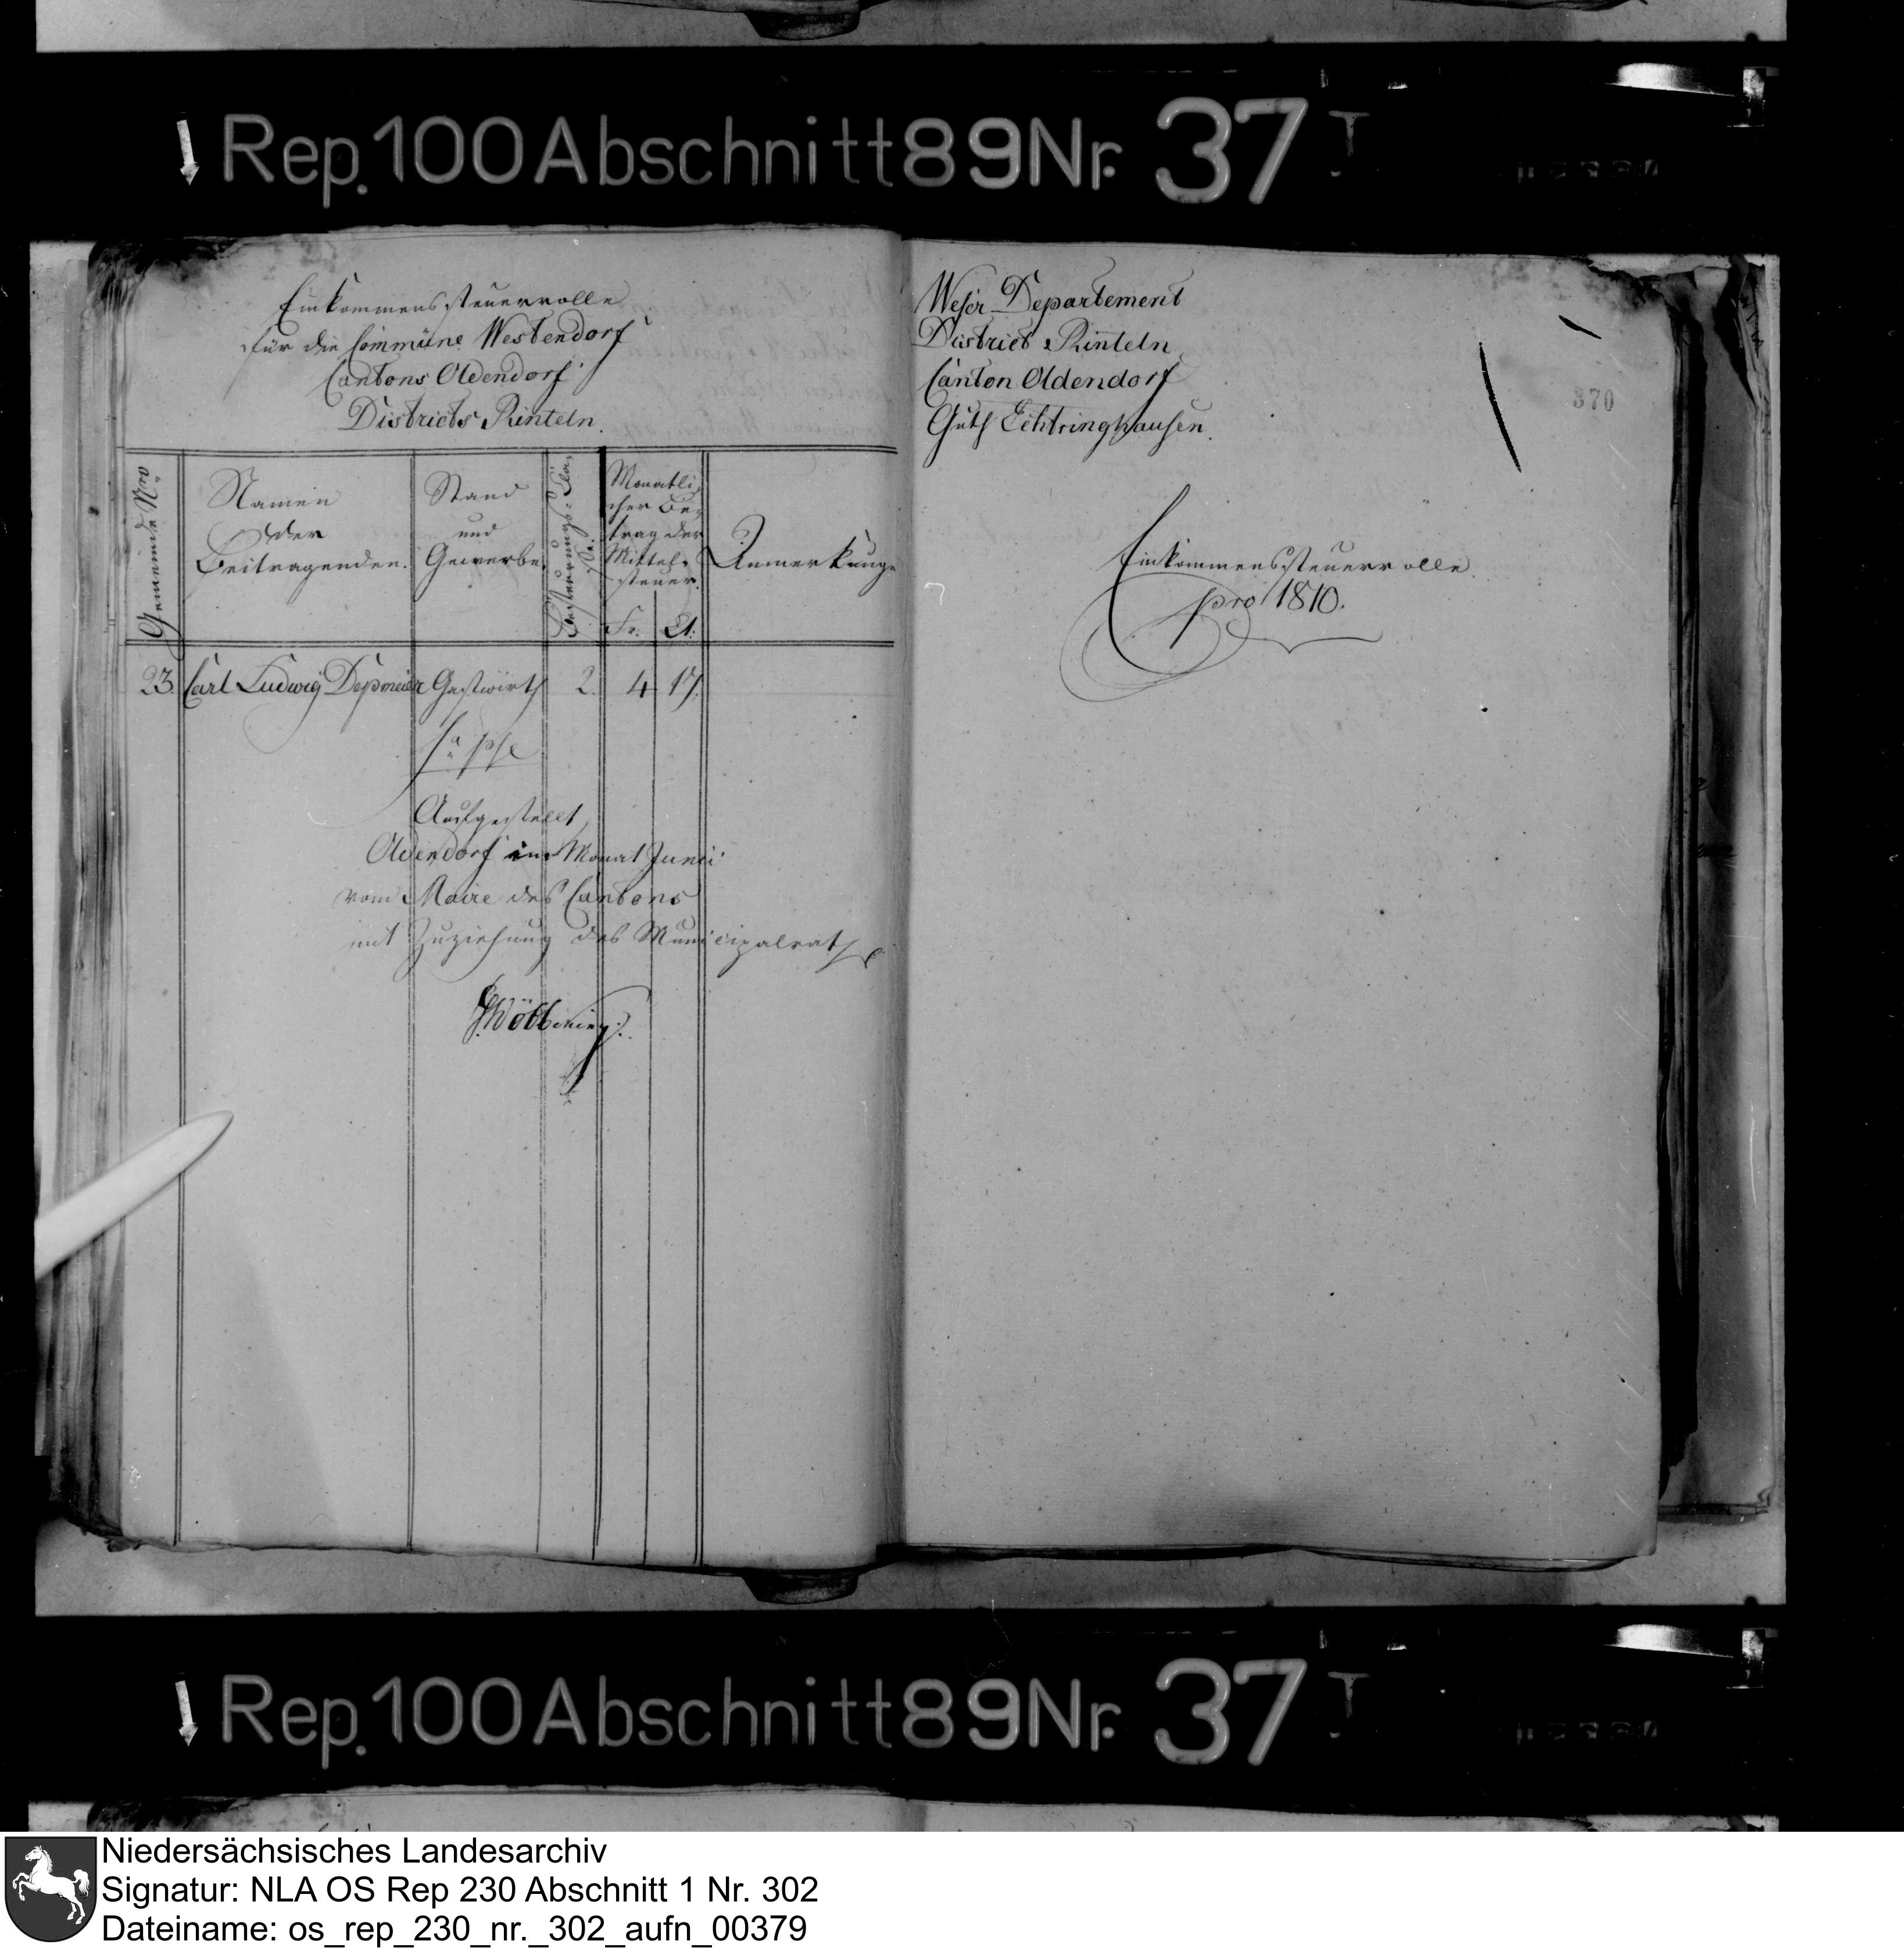 Rep. 100 Abschnitt 89 Nr. 37 I
Einkommenssteuerrolle
für die Commüne Westendorf
Cantons Oldendorf
Districts Rinteln.
Gemeinde Nro
Namen
der
Beitragenden.
Stand
und
Gewerbe.
Besteurungs-Clas-
se.
Monatli-
cher Be-
trag der
Mittel-
steuer.
Fr. Ct.
Anmerkunge
23. Carl Ludwig Depmeier Gastwirth 2. 4 17.
Aufgestellt
Oldendorf im Monat Junii
vom Maire des Cantons
mit Zuziehung des Municipalraths
Weser Departement
District Rinteln
Canton Oldendorf
Guth Echtringhausen.
370
Einkommenssteuerrolle
pro 1810.
Rep. 100 Abschnitt 89 Nr. 37 I
Niedersächsisches Landesarchiv
Signatur: NLA OS Rep 230 Abschnitt 1 Nr. 302
Dateiname: os_rep_230_nr._302_aufn_00379